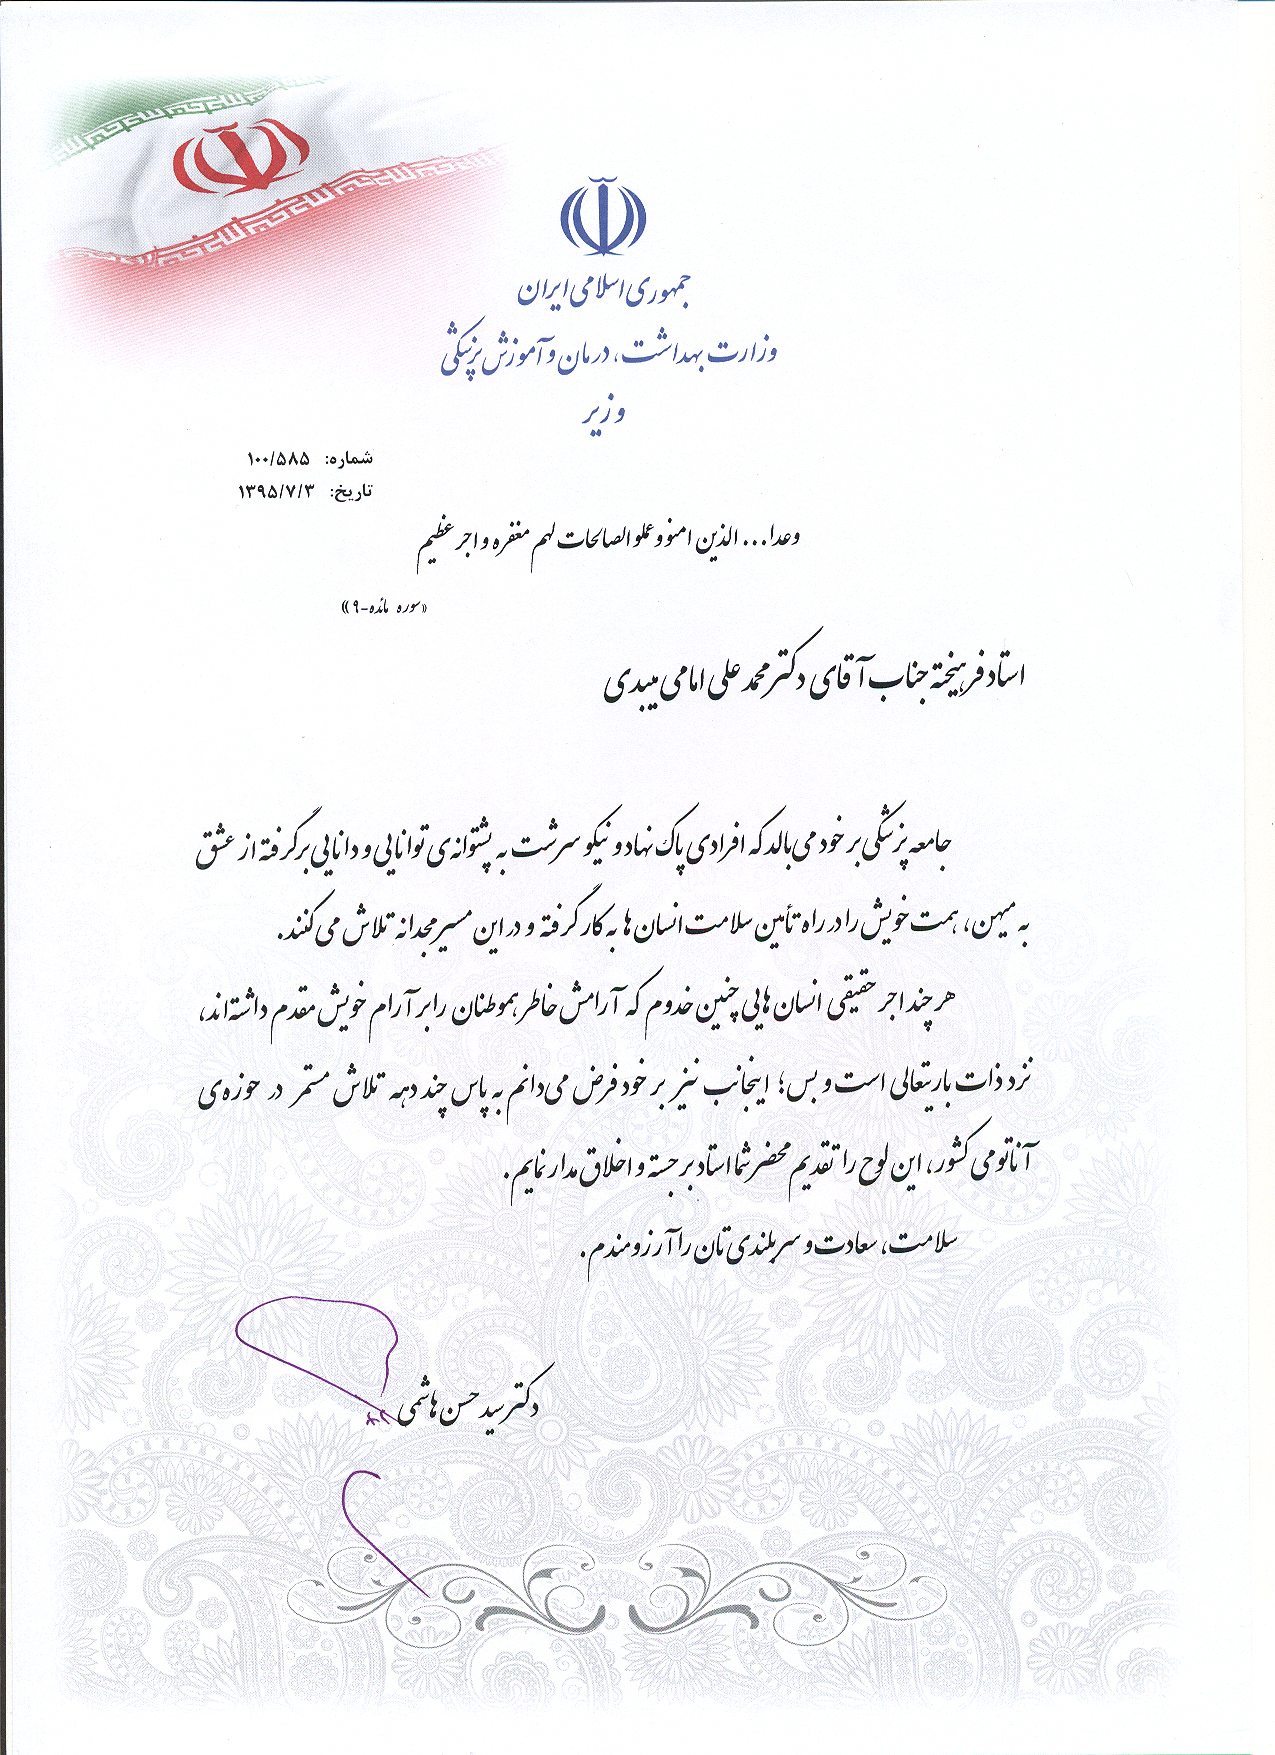 جمهوری اسلامی ایران
وزارت بهداشت، درمان و آموزش پزشکی
وزیر
شماره: ۱۰۰/۵۸۵
تاریخ: ۱۳۹۵/۷/۳
وعدا... الذین امنو و عملو الصالحات لهم مغفره و اجر عظیم
«سوره مائده-۹»
استاد فرهیخته جناب آقای دکتر محمد علی امامی میبدی
جامعه پزشکی بر خود می بالد که افرادی پاک نهاد و نیکو سرشت به پشتوانه ی توانایی و دانایی برگرفته از عشق
به میهن، همت خویش را در راه تأمین سلامت انسان ها به کار گرفته و در این مسیر مجدانه تلاش می کنند.
هر چند اجر حقیقی انسان هایی چنین خدوم که آرامش خاطر هموطنان را بر آرام خویش مقدم داشته اند،
نزد ذات باریتعالی است و بس؛ اینجانب نیز بر خود فرض می دانم به پاس چند دهه تلاش مستمر در حوزه ی
آناتومی کشور، این لوح را تقدیم محضر شما استاد برجسته و اخلاق مدار نمایم.
سلامت، سعادت و سربلندی تان را آرزومندم.
دکتر سید حسن هاشمی